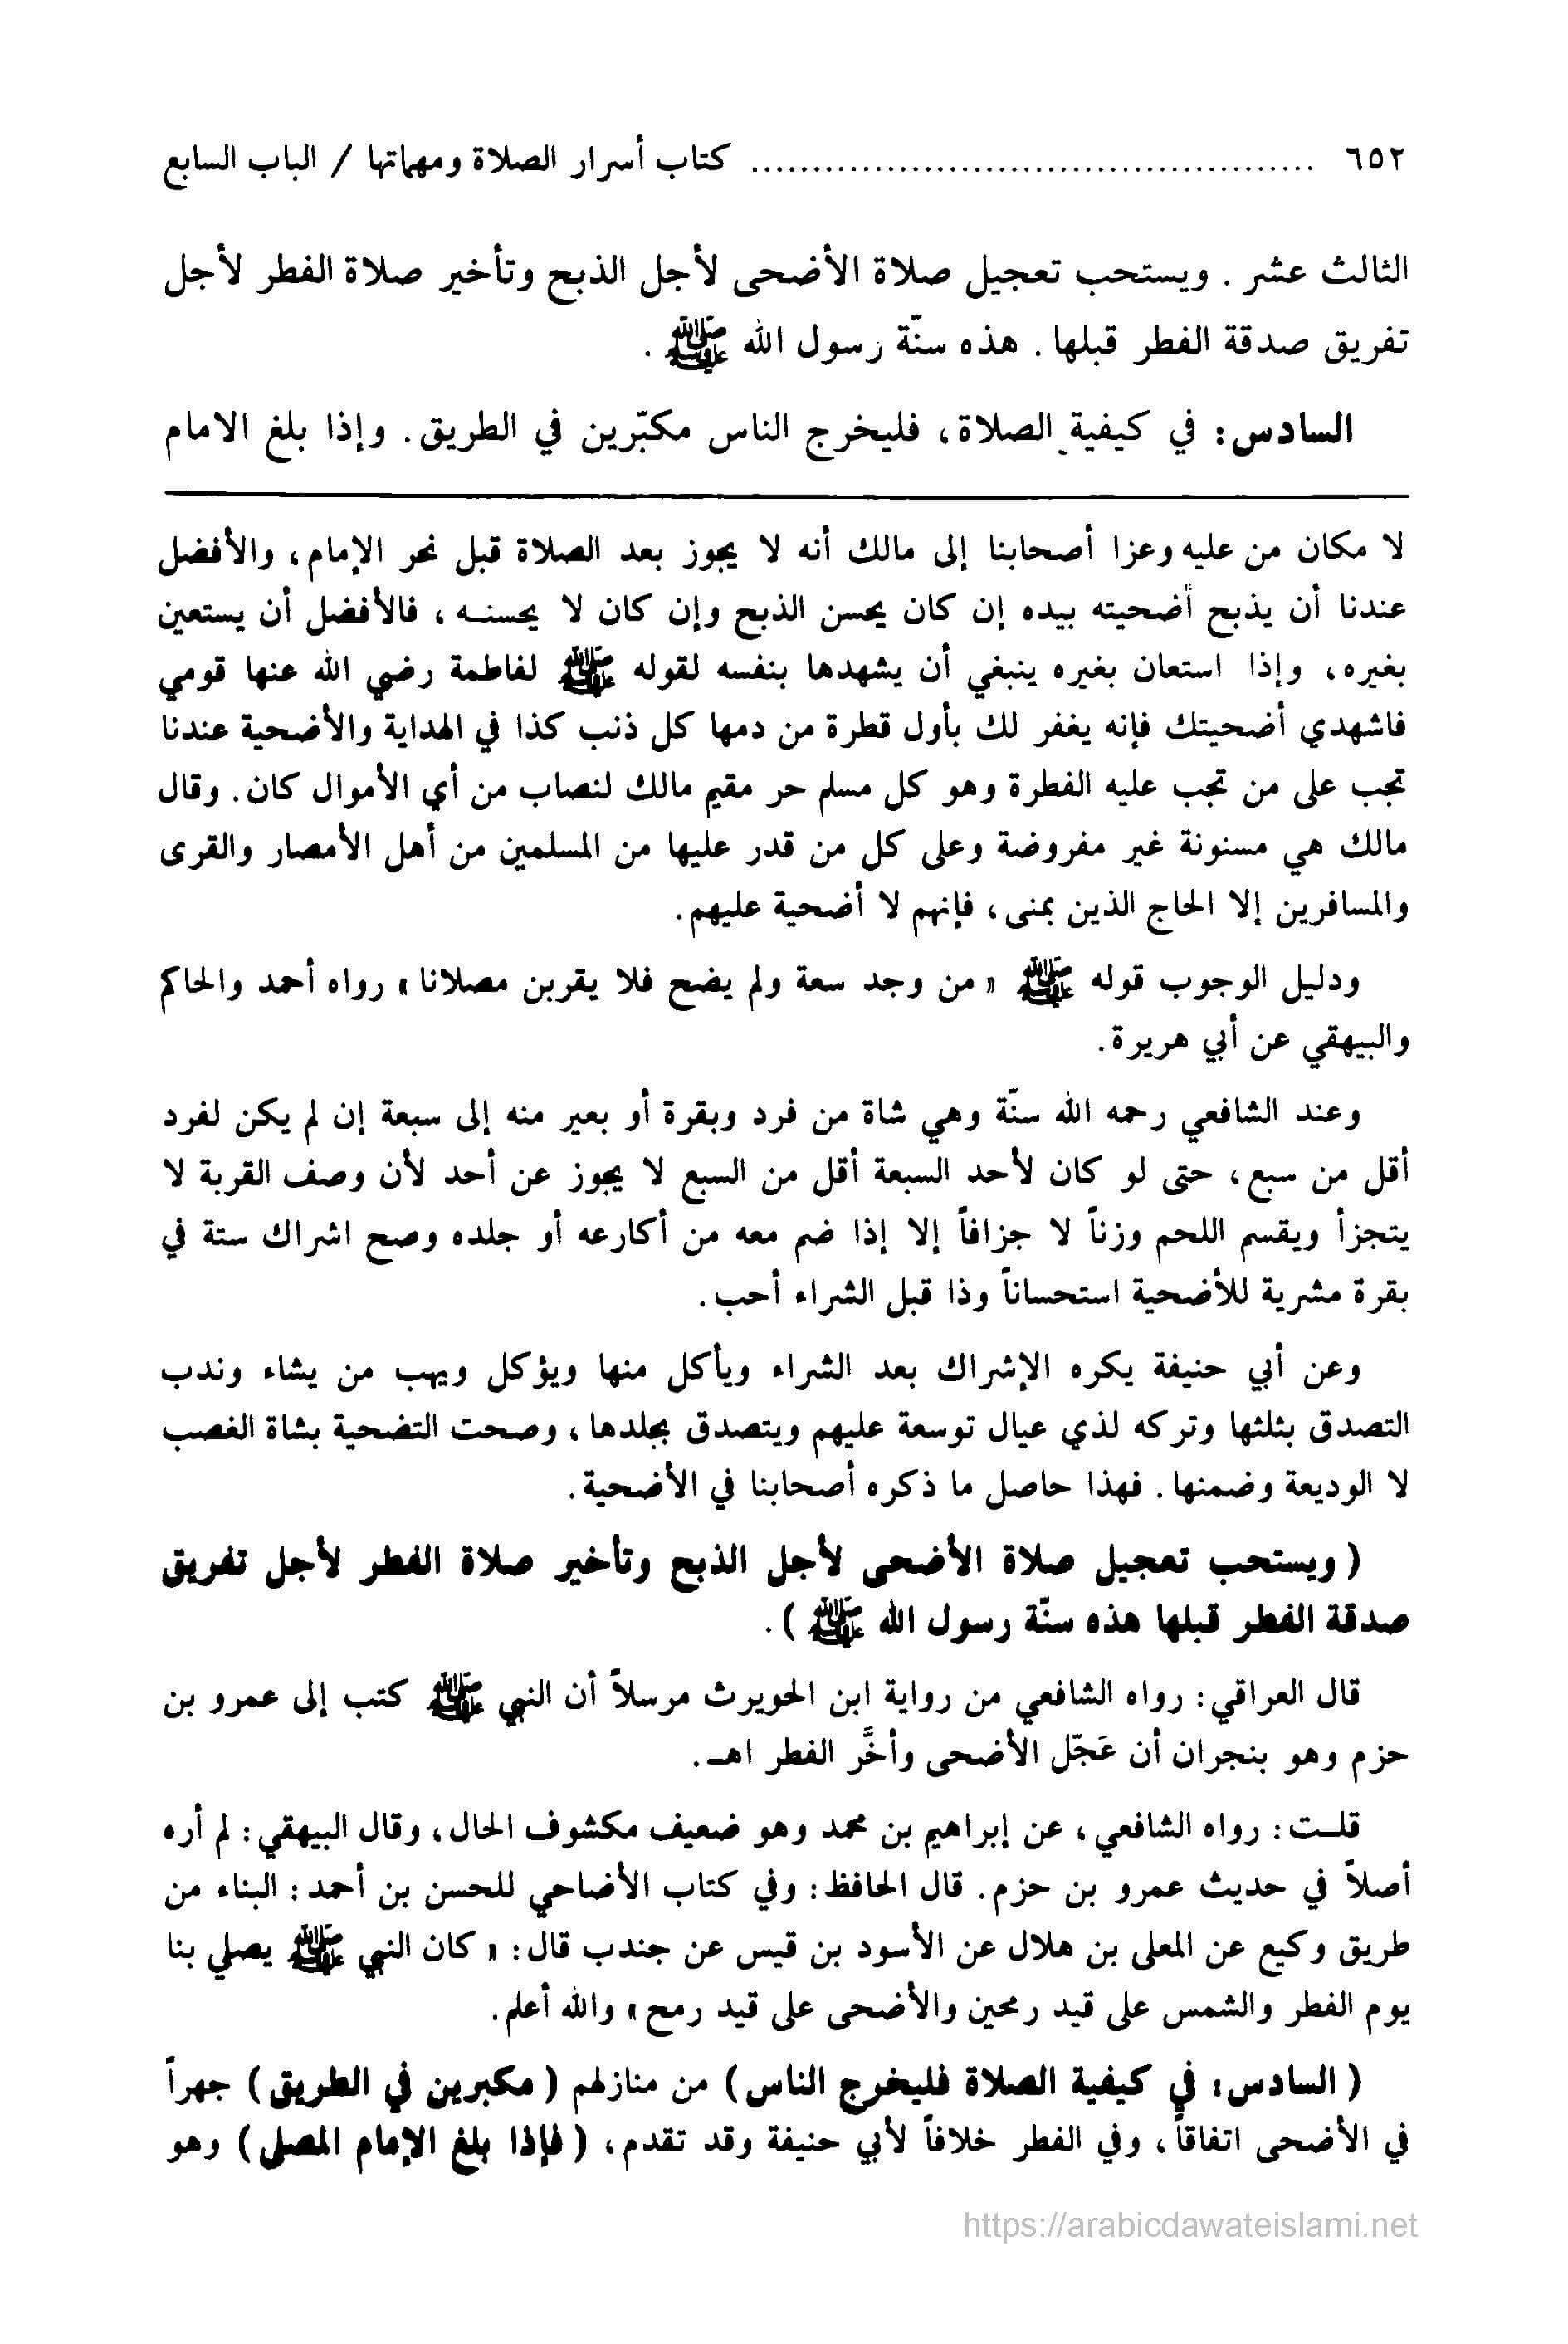 ٦٥٢ .............................................. كتاب أسرار الصلاة ومهماتها / الباب السابع
الثالث عشر . ويستحب تعجيل صلاة الأضحى لأجل الذبح وتأخير صلاة الفطر لأجل
تفريق صدقة الفطر قبلها . هذه سنّة رسول الله ﷺ .
السادس: في كيفية الصلاة، فليخرج الناس مكبّرين في الطريق. وإذا بلغ الامام
لا مكان من عليه وعزا أصحابنا إلى مالك أنه لا يجوز بعد الصلاة قبل نحر الإمام، والأفضل
عندنا أن يذبح أضحيته بيده إن كان يحسن الذبح وإن كان لا يحسنـه ، فالأفضل أن يستعين
بغيره، وإذا استعان بغيره ينبغي أن يشهدها بنفسه لقوله ﷺ لفاطمة رضي الله عنها قومي
فاشهدي أضحيتك فإنه يغفر لك بأول قطرة من دمها كل ذنب كذا في الهداية والأضحية عندنا
تجب على من تجب عليه الفطرة وهو كل مسلم حر مقيم مالك لنصاب من أي الأموال كان. وقال
مالك هي مسنونة غير مفروضة وعلى كل من قدر عليها من المسلمين من أهل الأمصار والقرى
والمسافرين إلا الحاج الذين بمنى، فإنهم لا أضحية عليهم.
ودليل الوجوب قوله ﷺ « من وجد سعة ولم يضح فلا يقربن مصلانا » رواه أحمد والحاكم
والبيهقي عن أبي هريرة.
وعند الشافعي رحمه الله سنّة وهي شاة من فرد وبقرة أو بعير منه إلى سبعة إن لم يكن لفرد
أقل من سبع، حتى لو كان لأحد السبعة أقل من السبع لا يجوز عن أحد لأن وصف القربة لا
يتجزأ ويقسم اللحم وزناً لا جزافاً إلا إذا ضم معه من أكارعه أو جلده وصح اشراك ستة في
بقرة مشرية للأضحية استحساناً وذا قبل الشراء أحب.
وعن أبي حنيفة يكره الإشراك بعد الشراء ويأكل منها ويؤكل ويهب من يشاء وندب
التصدق بثلثها وتركه لذي عيال توسعة عليهم ويتصدق بجلدها، وصحت التضحية بشاة الغصب
لا الوديعة وضمنها. فهذا حاصل ما ذكره أصحابنا في الأضحية.
( ويستحب تعجيل صلاة الأضحى لأجل الذبح وتأخير صلاة الفطر لأجل تفريق
صدقة الفطر قبلها هذه سنّة رسول الله ﷺ ).
قال العراقي: رواه الشافعي من رواية ابن الحويرث مرسلاً أن النبي ﷺ كتب إلى عمرو بن
حزم وهو بنجران أن عَجّل الأضحى وأخَّر الفطر اهـ.
قلـت: رواه الشافعي، عن إبراهيم بن محمد وهو ضعيف مكشوف الحال، وقال البيهقي: لم أره
أصلاً في حديث عمرو بن حزم. قال الحافظ: وفي كتاب الأضاحي للحسن بن أحمد: البناء من
طريق وكيع عن المعلى بن هلال عن الأسود بن قيس عن جندب قال: « كان النبي ﷺ يصلي بنا
يوم الفطر والشمس على قيد رمحين والأضحى على قيد رمح » والله أعلم.
( السادس: في كيفية الصلاة فليخرج الناس) من منازلهم ( مكبرين في الطريق) جهراً
في الأضحى اتفاقاً، وفي الفطر خلافاً لأبي حنيفة وقد تقدم، ( فإذا بلغ الإمام المصلى) وهو
https://arabicdawateislami.net